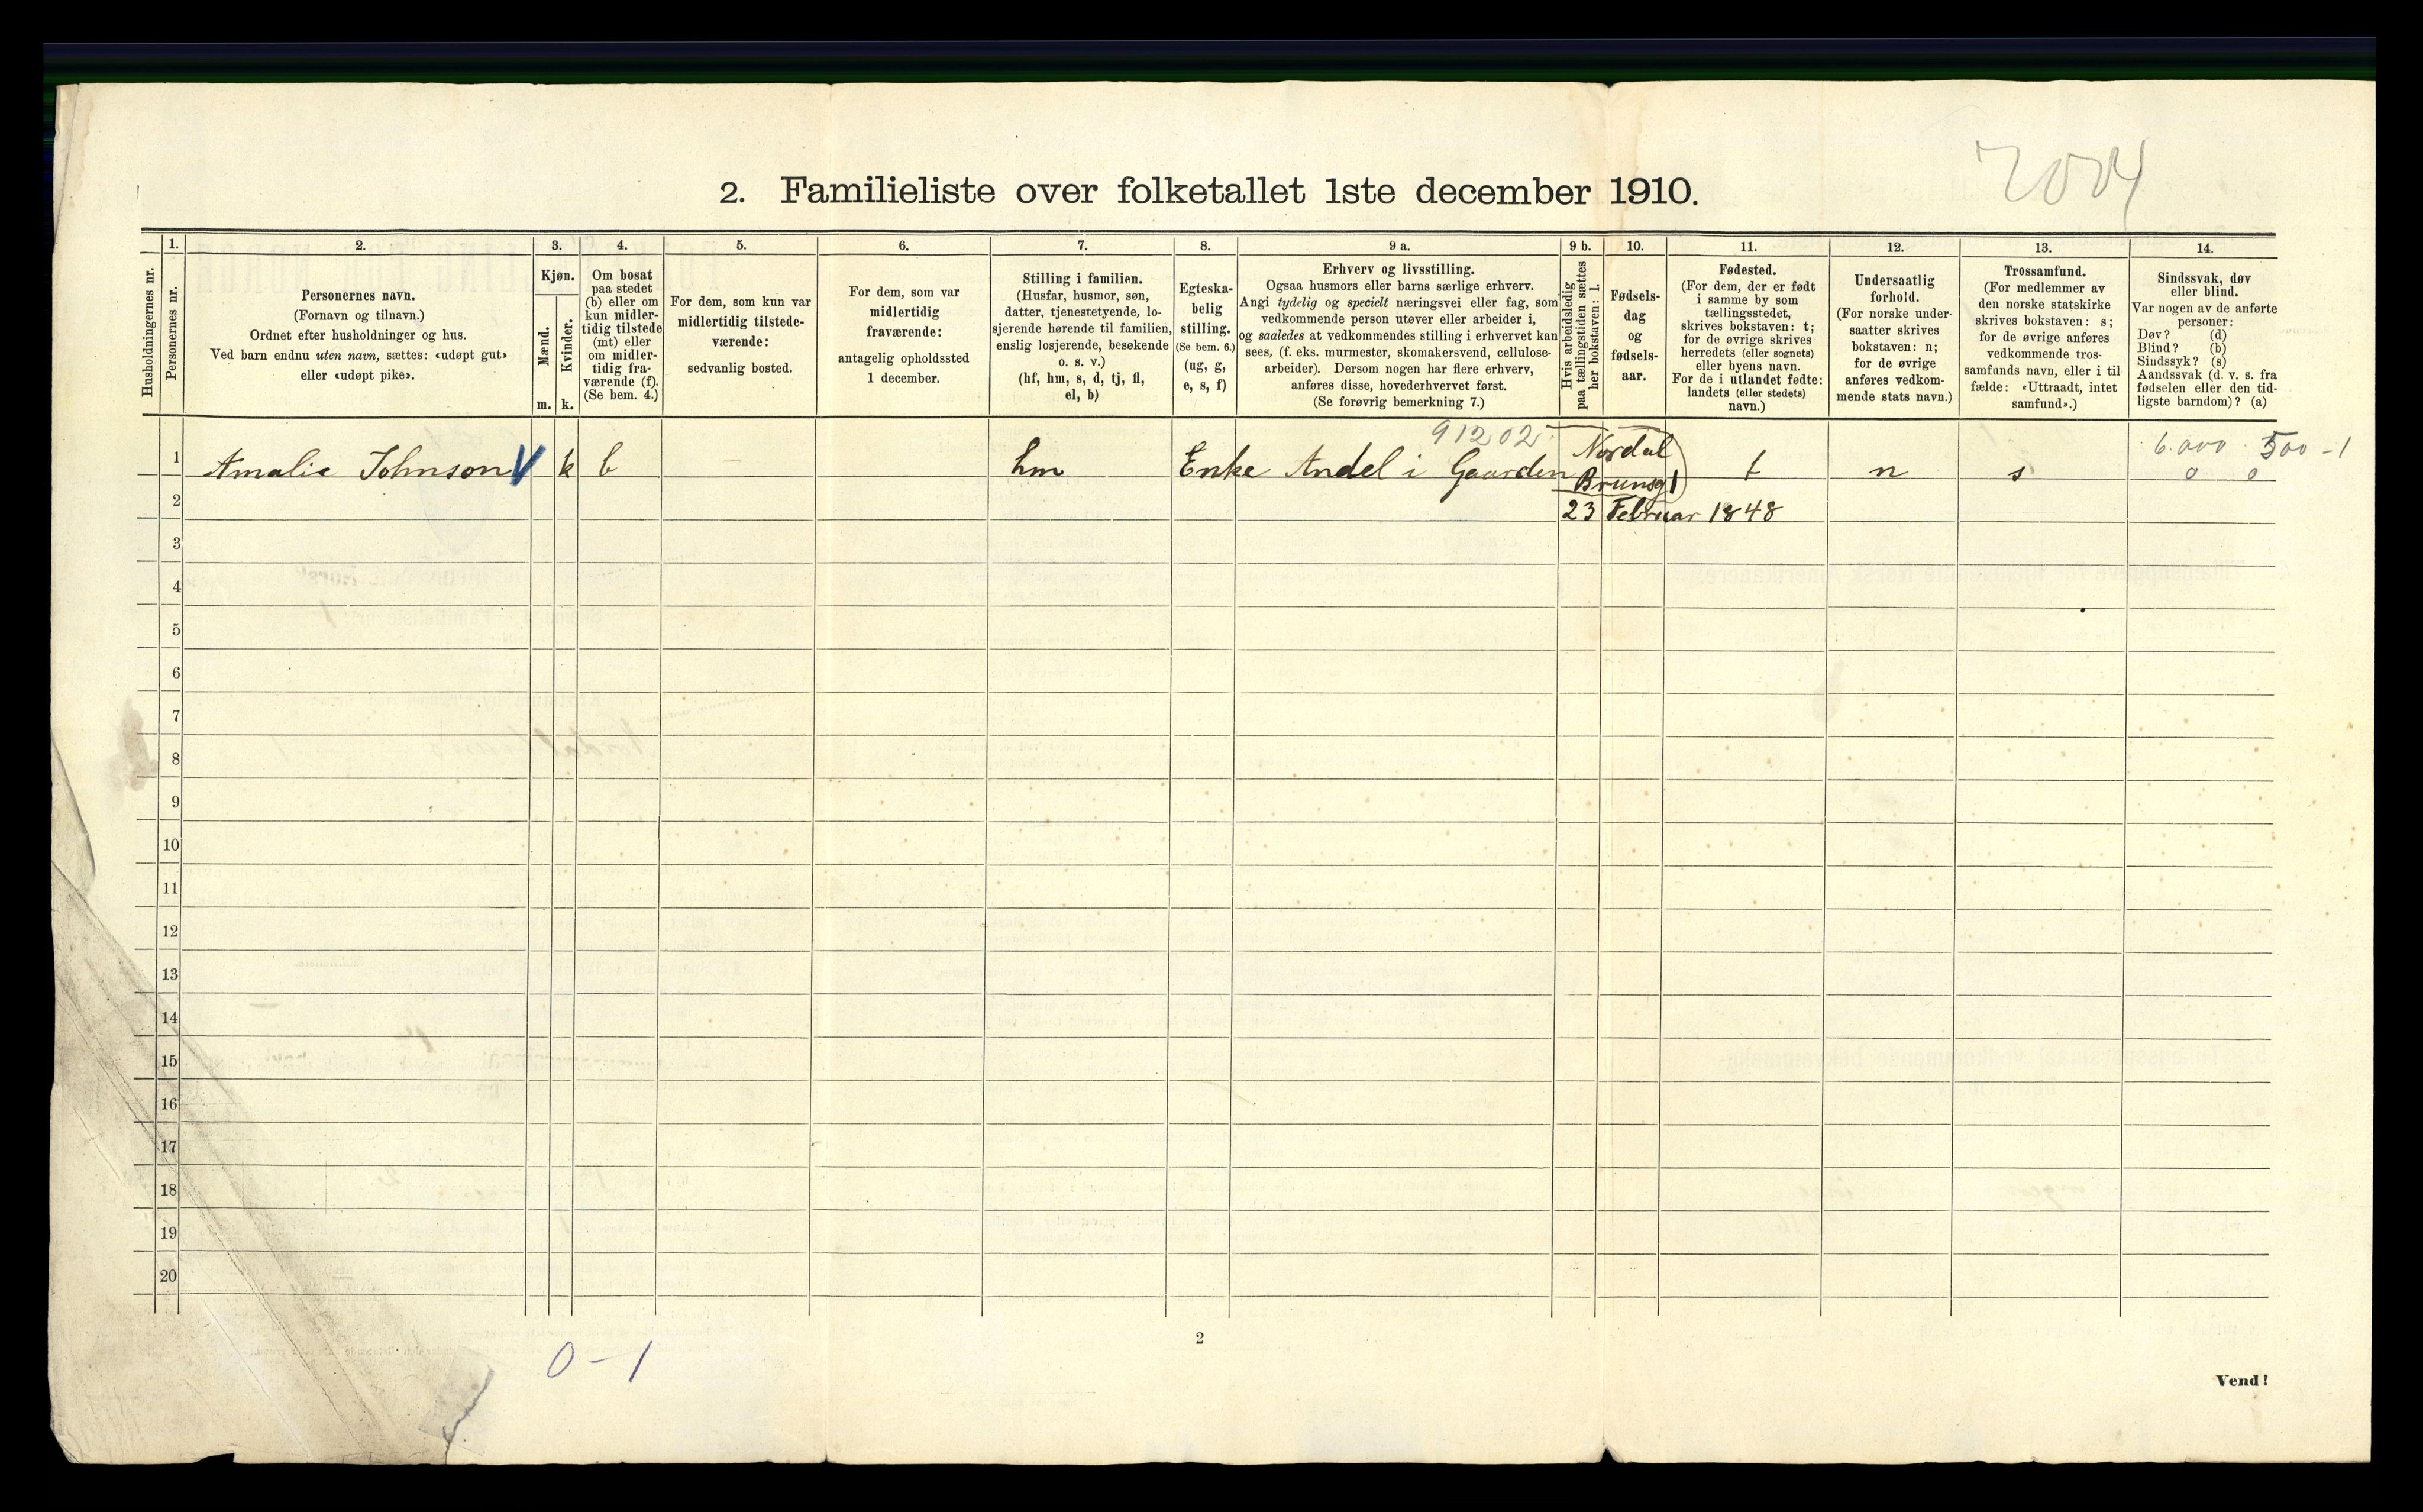 2004
2. Familieliste over folketallet 1ste december 1910.
Husholdningernes nr.
1.
Personernes nr.
2.
Personernes navn.
(Fornavn og tilnavn.)
Ordnet efter husholdninger og hus.
Ved barn endnu uten navn, sættes: «udøpt gut»
eller «udøpt pike».
3.
Kjøn.
Mænd.
m.
Kvinder.
k.
4.
Om bosat
paa stedet
(b) eller om
kun midler-
tidig tilstede
(mt) eller
om midler-
tidig fra-
værende (f).
(Se bem. 4.)
5.
For dem, som kun var
midlertidig tilstede-
værende:
sedvanlig bosted.
6.
For dem, som var
midlertidig
fraværende:
antagelig opholdssted
1 december.
7.
Stilling i familien.
(Husfar, husmor, søn,
datter, tjenestetyende, lo-
sjerende hørende til familien,
enslig losjerende, besøkende
o. s. v.)
(hf, hm, s, d, tj, fl,
el, b)
8.
Egteska-
belig
stilling.
(Se bem. 6.)
(ug, g,
e, s, f)
9 a.
Erhverv og livsstilling.
Ogsaa husmors eller barns særlige erhverv.
Angi tydelig og specielt næringsvei eller fag, som
vedkommende person utøver eller arbeider i,
og saaledes at vedkommendes stilling i erhvervet kan
sees, (f. eks. murmester, skomakersvend, cellulose-
arbeider). Dersom nogen har flere erhverv,
anføres disse, hovederhvervet først.
(Se forøvrig bemerkning 7.)
9 b.
Hvis arbeidsledig
paa tællingstiden sættes
her bokstaven: l.
10.
Fødsels-
dag
og
fødsels-
aar.
11.
Fødested.
(For dem, der er født
i samme by som
tællingsstedet,
skrives bokstaven: t;
for de øvrige skrives
herredets (eller sognets)
eller byens navn.
For de i utlandet fødte:
landets (eller stedets)
navn.)
12.
Undersaatlig
forhold.
(For norske under-
saatter skrives
bokstaven: n;
for de øvrige
anføres vedkom-
mende stats navn.)
13.
Trossamfund.
(For medlemmer av
den norske statskirke
skrives bokstaven: s;
for de øvrige anføres
vedkommende tros-
samfunds navn, eller i til-
fælde: «Uttraadt, intet
samfund».)
14.
Sindssvak, døv
eller blind.
Var nogen av de anførte
personer:
Døv? (d)
Blind? (b)
Sindssyk? (s)
Aandssvak (d. v. s. fra
fødselen eller den tid-
ligste barndom)? (a)
91202 Nordal 6.000 500 - 1
1 Amalie Johnson V k b – hm Enke Andel i Gaarden Brunsgt t n s 0 0
2 23 Februar 1848
3
4
5
6
7
8
9
10
11
12
13
14
15
16
17
18
19
20
0 - 1
2
Vend!